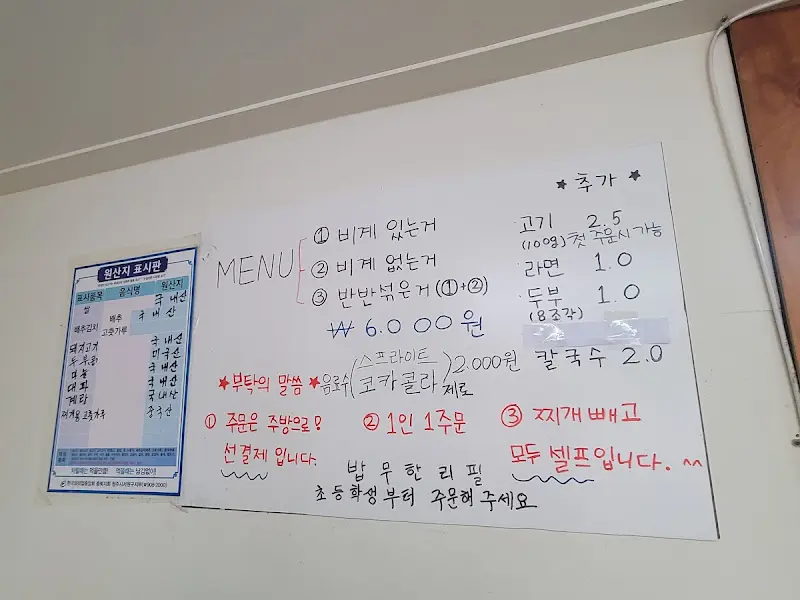 원산지 표시판
표시품목 음식명 원산지
쌀 국내산
배추김치 배추 국내산
고춧가루
돼지고기 국내산
두부,콩 미국산
마늘 국내산
대파 국내산
계란 국내산
찌개용 고춧가루 중국산
MENU
① 비계 있는거
② 비계 없는거
③ 반반섞은거 (①+②)
₩ 6.000원
★ 추가 ★
고기 2.5
(100g) 첫 주문시 가능
라면 1.0
두부 1.0
(8조각)
칼국수 2.0
음료수 (스프라이트
코카콜라 제로) 2.000원
★부탁의 말씀★
① 주문은 주방으로!
선결제 입니다.
② 1인 1주문
③ 찌개 빼고
모두 셀프입니다. ^^
밥 무한리필
초등학생부터 주문해주세요